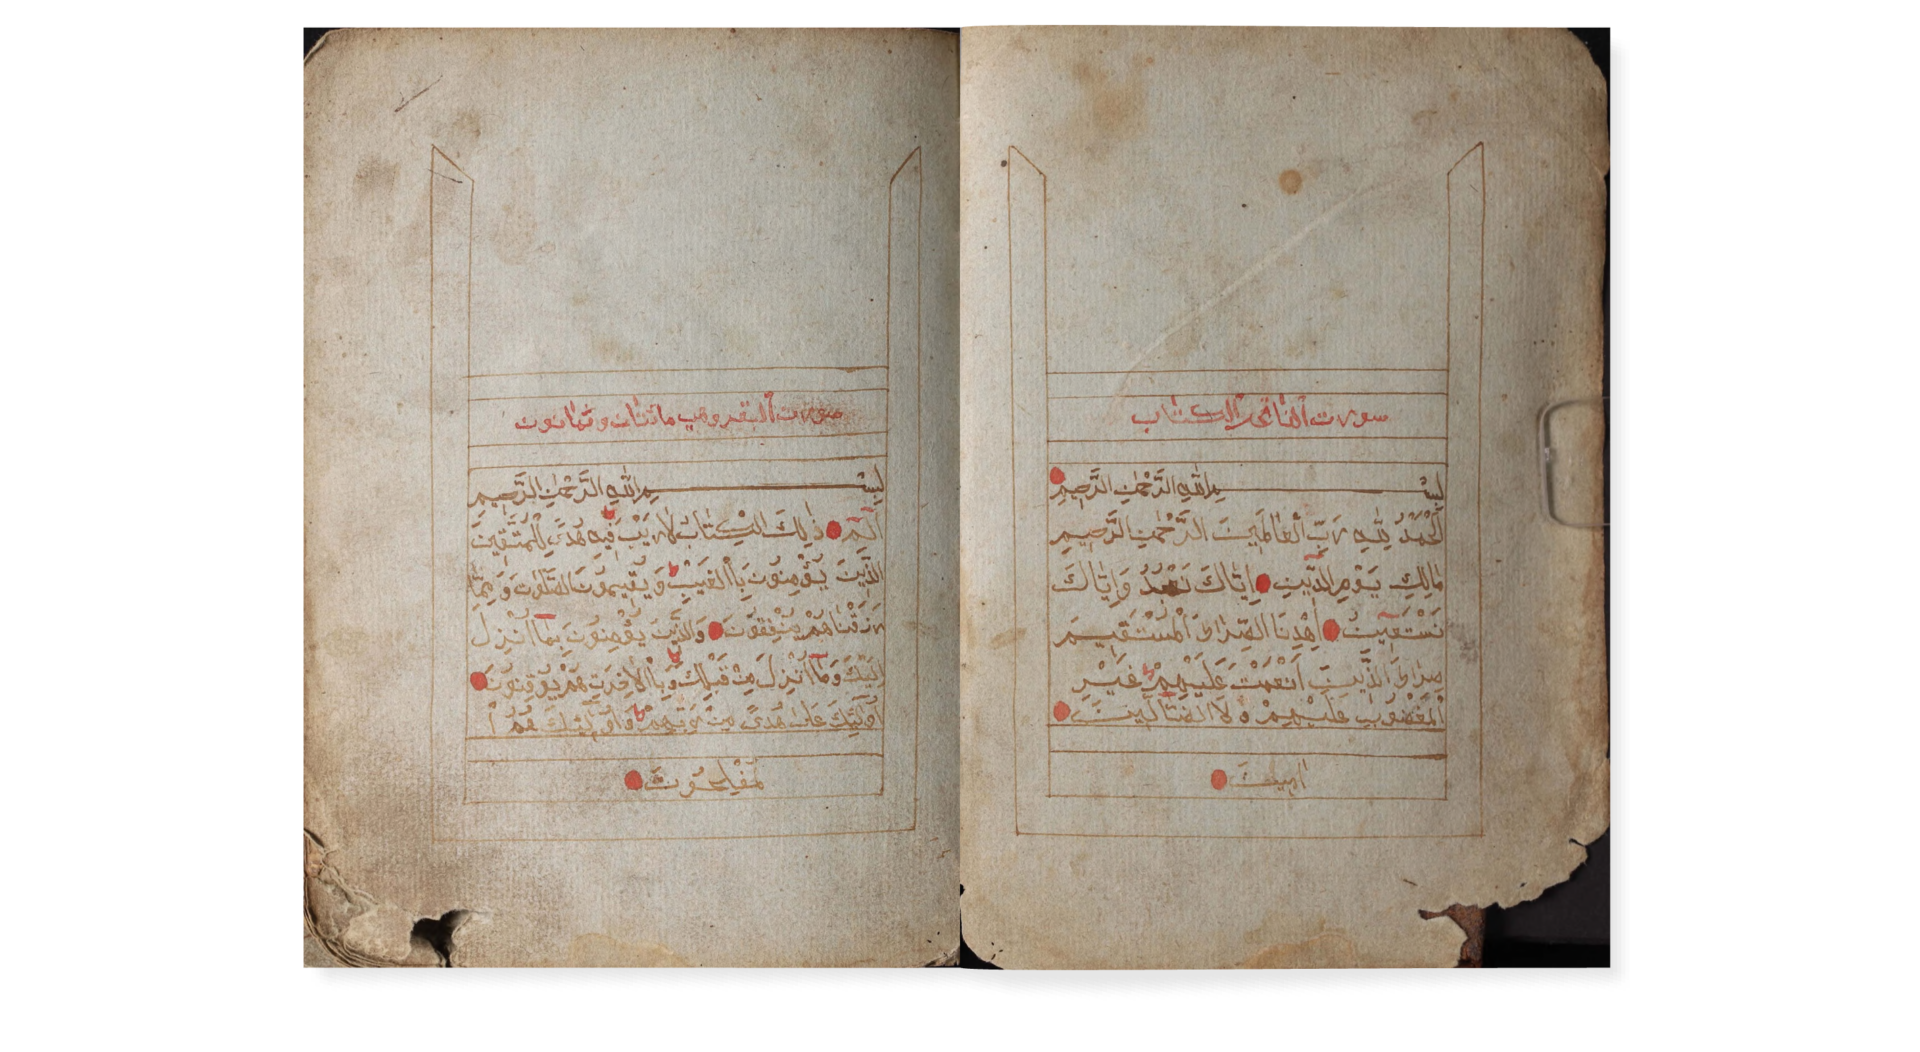 سورت ألفاتحة الكتاب
بِسْــمِ اللَّهِ الرَّحْمٰنِ الرَّحِيمِ
اَلْحَمْدُ لِلَّهِ رَبِّ الْعَالَمِينَ الرَّحْمٰنِ الرَّحِيمِ
مَالِكِ يَوْمِ الدِّينِ إِيَّاكَ نَعْبُدُ وَإِيَّاكَ
نَسْتَعِينُ اِهْدِنَا الصِّرَاطَ الْمُسْتَقِيمَ
صِرَاطَ الَّذِينَ أَنْعَمْتَ عَلَيْهِمْ غَيْرِ
الْمَغْضُوبِ عَلَيْهِمْ وَلَا الضَّالِّينَ
امينَ
سورت ألبقر وهي مائتان وثمانون
بِسْــمِ اللَّهِ الرَّحْمٰنِ الرَّحِيمِ
الٓمٓ ذٰلِكَ الْكِتَابُ لَا رَيْبَ فِيهِ هُدًى لِلْمُتَّقِينَ
الَّذِينَ يُؤْمِنُونَ بِالْغَيْبِ وَيُقِيمُونَ الصَّلٰوتَ وَمِمَّا
رَزَقْنَاهُمْ يُنْفِقُونَ وَالَّذِينَ يُؤْمِنُونَ بِمَا أُنْزِلَ
إِلَيْكَ وَمَا أُنْزِلَ مِنْ قَبْلِكَ وَبِالْأٰخِرَتِ هُمْ يُوقِنُونَ
أُولٰئِكَ عَلٰى هُدًى مِنْ رَبِّهِمْ وَأُولٰئِكَ هُمُ ا
لْمُفْلِحُونَ